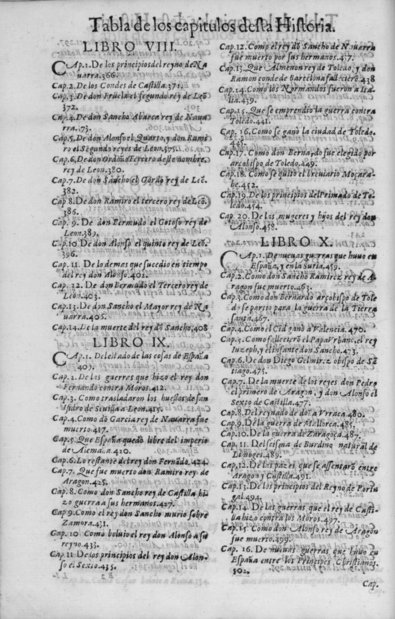 Tabla de los capitulos desta Historia.
LIBRO VIII.
CAp.1. De los principes del reyno de Na
uarra.366.
Cap.2. De los Condes de Castilla.371.
Cap.3. De don Fruela el segundo rey de Leõ.
372.
Cap.4. De don Sancho Abarca rey de Naua
rra.
Cap.5. De don Alonso el Quarto, y don Rami
ro el Segundo reyes de Leon.375.
Cap.6. De don Ordoño Tercero deste nombre,
rey de Leon.380
Cap.7. De don Sancho el Gordo rey de Leõ.
382.
Cap.8. De don Ramiro el tercero rey de Leõ.
386.
Cap.9. De don Bermudo el Gotoso rey de
Leon.389.
Cap.10. De don Alonso el quinto rey de Leõ.
396.
Cap.11. De lo demas que sucedio en tiempo
del rey don Alonso.401.
Cap.12. De don Bermudo el Tercero rey de
Leõ.403.
Cap.13. De don Sancho el Mayor rey de Na
uarra.406.
Cap.14. De la muerte del rey dõ Sancho.408
LIBRO IX.
CAp.1. Del estado de las cosas de España
Cap.2. De las guerras que hizo el rey don
Fernando contra Moros.412.
Cap.3. Como trasladaron los huessos de san
Isidro de Seuilla a Leon.415.
Cap.4. Como dõ Garcia rey de Nauarra fue
muerto.417.
Cap.5. Que España quedò libre del imperio
de Alemania.420
Cap.6. Lo restante del rey don Fernãdo.424
Cap.7. Que fue muerto don Ramiro rey de
Aragon.425.
Cap.8. Como don Sancho rey de Castilla hi
zo guerra a sus hermanos.427.
Cap.9. Como el rey don Sancho murio sobre
Zamora.431.
Cap.10. Como boluio el rey don Alonso a su
reyno.433.
Cap.11. De los principios del rey don Alon
so el Sexto.435.
Cap.12. Como el rey dõ Sancho de Nauarra
fue muerto por sus hermanos.437.
Cap.13. Que Almenon rey de Toledo, y don
Ramon conde de Barcelona fallecierõ.438
Cap.14. Como los Normandos fueron a Ita
lia.439.
Cap.15. Que se emprendio la guerra contra
Toledo.441.
Cap.16. Como se ganò la ciudad de Toledo.
Cap.17. Como don Bernardo fue elegido por
arçobispo de Toledo.449.
Cap.18. Como se quitò el breuiario Moçara
be.452.
Cap.19. De los principios del Primado de To
ledo.454.
Cap.20. De las mugeres y hijos del rey don
Alonso.458.
LIBRO X.
CAp.1. De nueuas guerras que huuo en
España, y en la Suria.459.
Cap.2. Como don Sancho Ramirez rey de A-
ragon fue muerto.463.
Cap.3. Como don Bernardo arçobispo de Tole
do se partio para la guerra de la Tierra
santa.467.
Cap.4. Como el Cid ganò a Valencia.470.
Cap.5. Como fallecierõ el Papa Vrbano, el rey
Iuzeph, y el infante don Sancho.473.
Cap.6. De don Diego Gelmirez obispo de Sã
tiago.475.
Cap.7. De la muerte de los reyes don Pedro
el primero de Aragon, y don Alonso el
Sexto de Castilla.477.
Cap.8. Del reynado de doña Vrraca.480.
Cap.9. De la guerra de Mallorca.485.
Cap.10. De la guerra de Zaragoça.487.
Cap.11. Del scisma de Burdino natural de
Limoges.489.
Cap.12. De las pazes que se assentarõ entre
Aragon y Castilla.491.
Cap.13. De los principios del Reyno de Portu
gal.494.
Cap.14. De las guerras que el rey de Casti
lla hizo contra los Moros.497.
Cap.15. Como don Alonso rey de Aragon
fue muerto.499.
Cap.16. De nueuas guerras que huuo en
España entre los Principes Christianos.
502.
Cap.